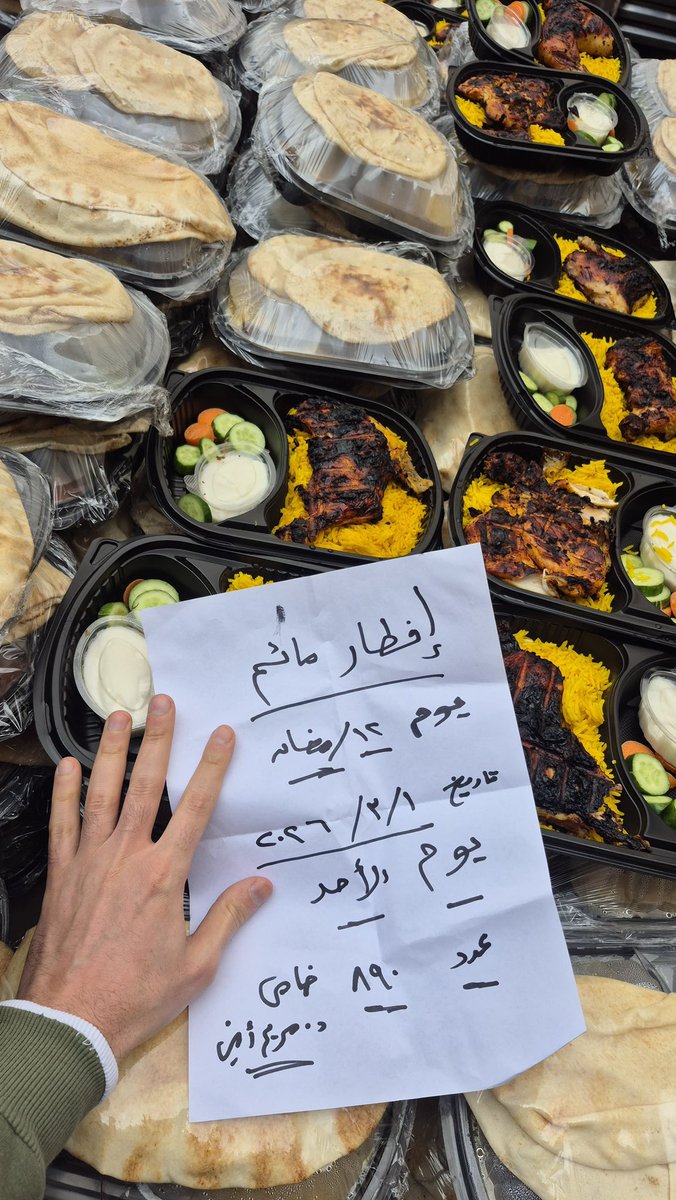 إفطار صائم
يوم ١٢/رمضان
تاريخ ٣/١/ ٢٠٢٦
يوم الأحد
عدد ٨٩٠ خاص
د. مريم